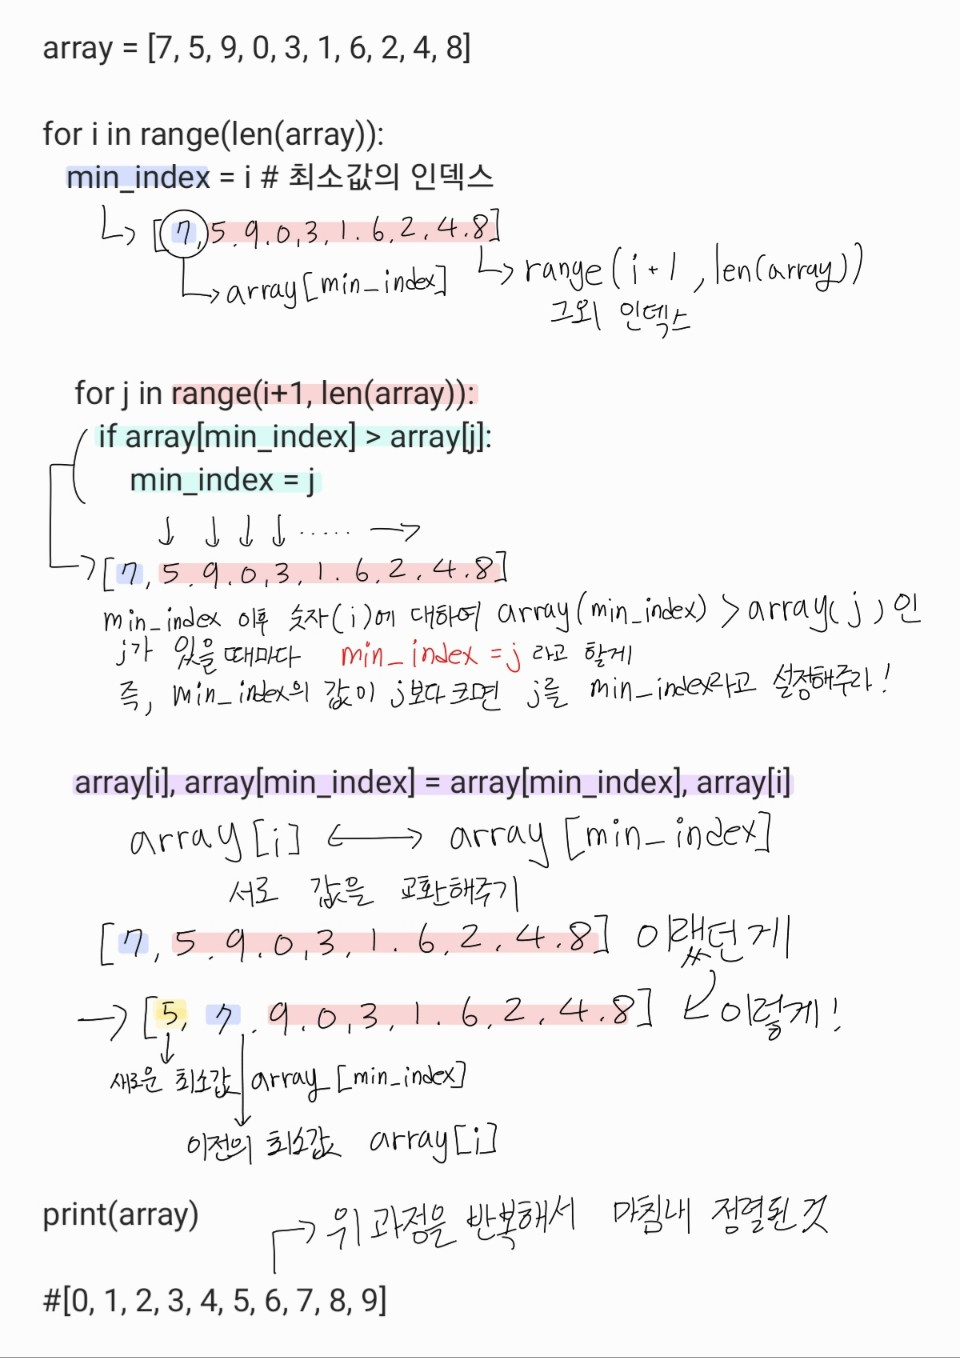 array = [7, 5, 9, 0, 3, 1, 6, 2, 4, 8]
for i in range(len(array)):
min_index = i # 최소값의 인덱스
[7, 5. 9. 0, 3, 1. 6, 2, 4. 8]
array[min_index]
range(i+1, len(array))
그외 인덱스
for j in range(i+1, len(array)):
if array[min_index] > array[j]:
min_index = j
↓ ↓ ↓ ↓ ..... →
[7, 5. 9. 0, 3, 1. 6, 2, 4. 8]
min_index 이후 숫자(i)에 대하여 array(min_index) > array(j)인
j가 있을 때마다 min_index = j 라고 할게
즉, min_index의 값이 j보다 크면 j를 min_index라고 설정해주라!
array[i], array[min_index] = array[min_index], array[i]
array[i] ↔ array[min_index]
서로 값을 교환해주기
[7, 5. 9. 0, 3, 1. 6, 2, 4. 8] 이랬던게
→ [5, 7. 9. 0, 3, 1. 6, 2, 4. 8] 이렇게!
새로운 최소값 array[min_index]
이전의 최소값 array[i]
print(array)
→ 위 과정을 반복해서 마침내 정렬된 것
#[0, 1, 2, 3, 4, 5, 6, 7, 8, 9]